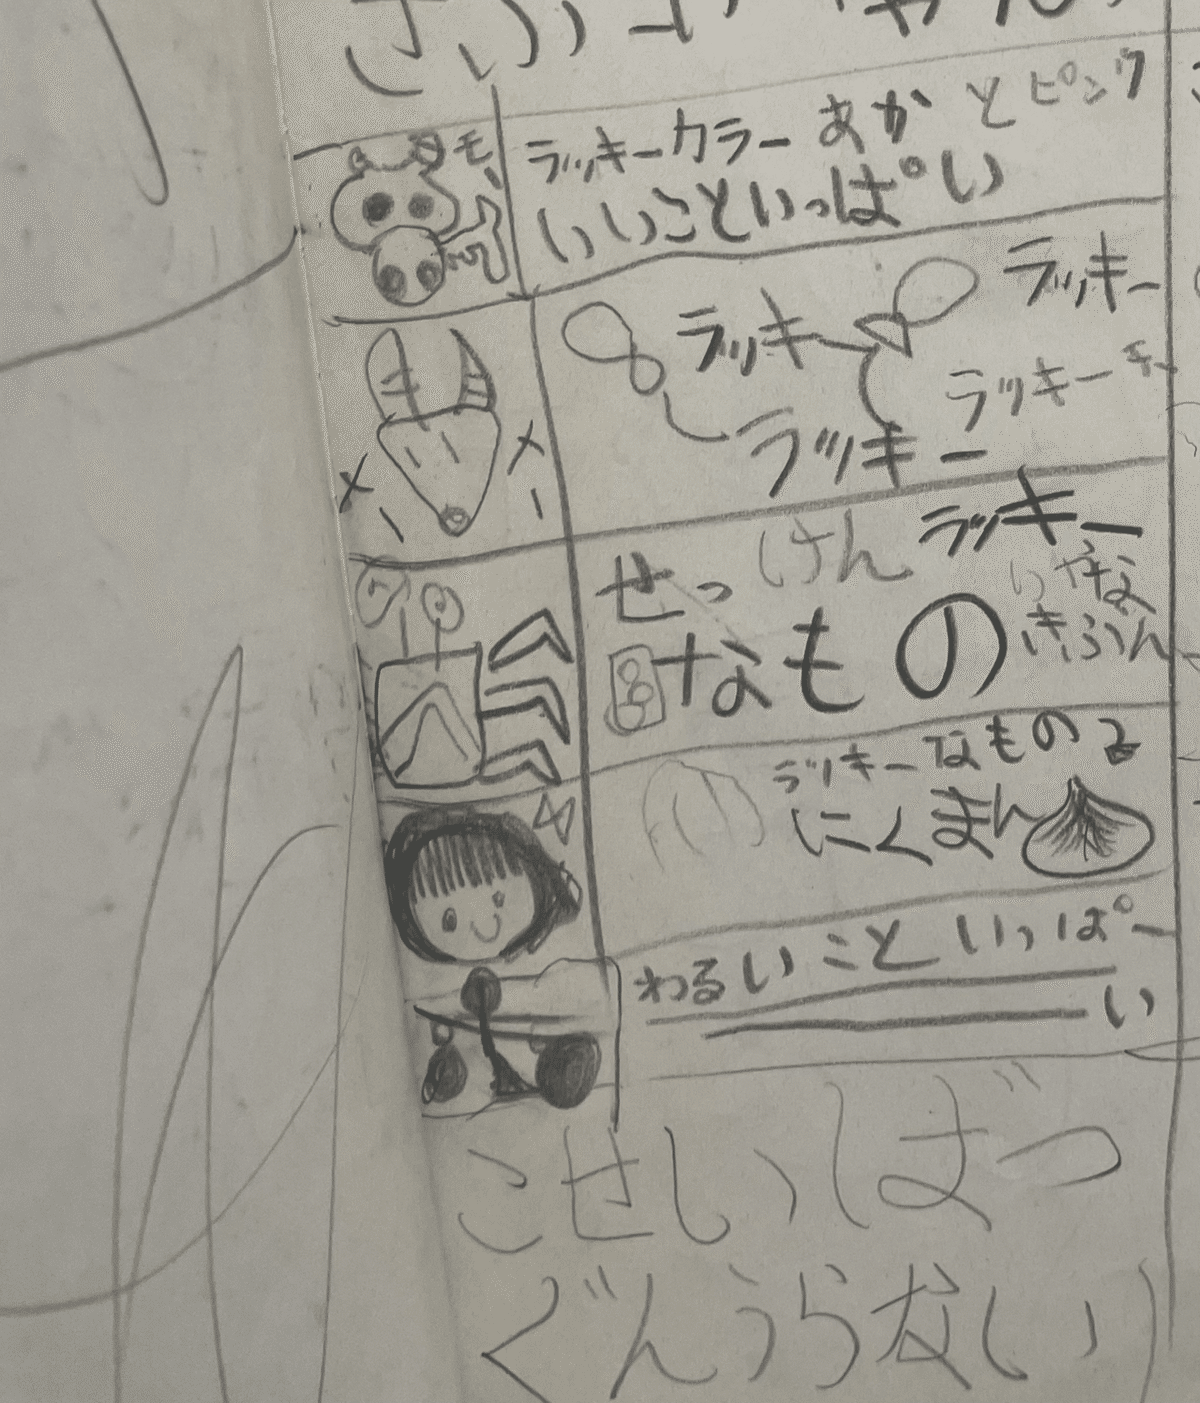 モ
ラッキーカラー あか と ピンク
いいこといっぱい
ラッキー
ラッキー
ラッキー
ラッキー
せっけん ラッキー
なもの
いやな
きぶん
ラッキーなもの
にくまん
わるいこといっぱー
い
こせいばつ
ぐんうらない